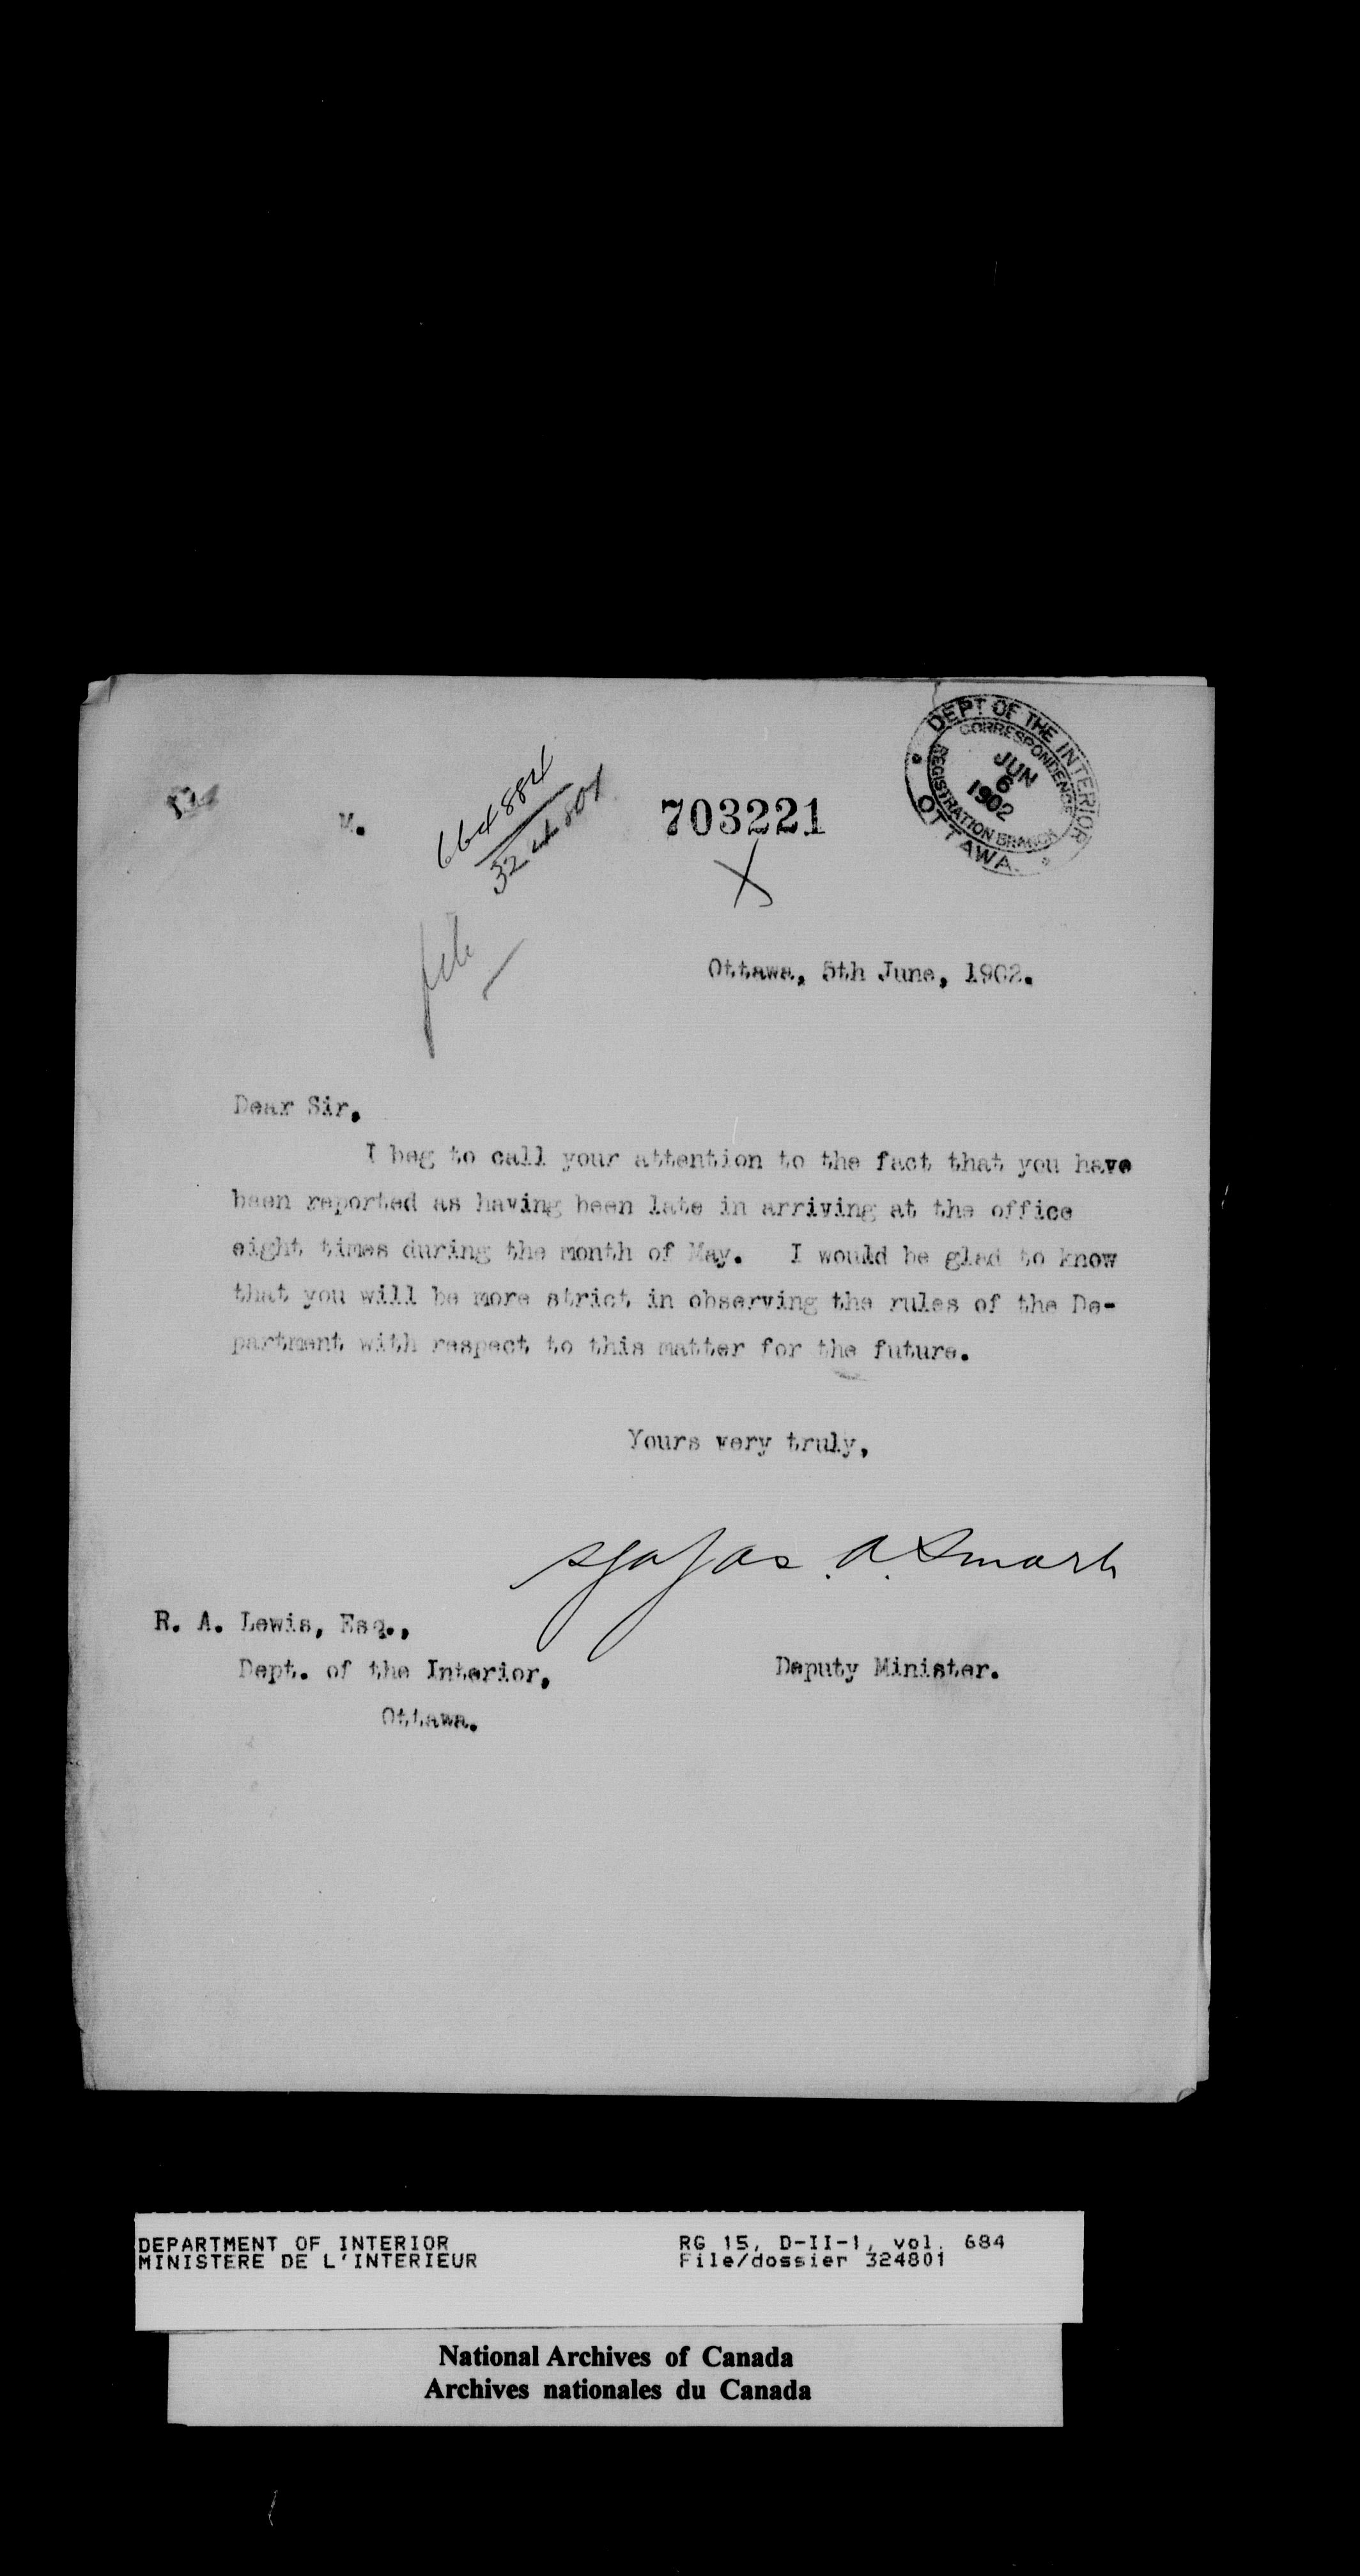 DEPT OF THE INTERIOR
CORRESPONDENCE
JUN
6
1902
REGISTRATION BRANCH
OTTAWA.
M.
664884
324801
703221
X
file
Ottawa, 5th June, 1902.
Dear Sir,
I beg to call your attention to the fact that you have
been reported as having been late in arriving at the office
eight times during the month of May. I would be glad to know
that you will be more strict in observing the rules of the De-
partment with respect to this matter for the future.
Yours very truly,
sgd Jas. A. Smart
R. A. Lewis, Esq.,
Dept. of the Interior,
Deputy Minister.
Ottawa.
DEPARTMENT OF INTERIOR
MINISTERE DE L'INTERIEUR
RG 15, D-II-1, vol. 684
File/dossier 324801
National Archives of Canada
Archives nationales du Canada